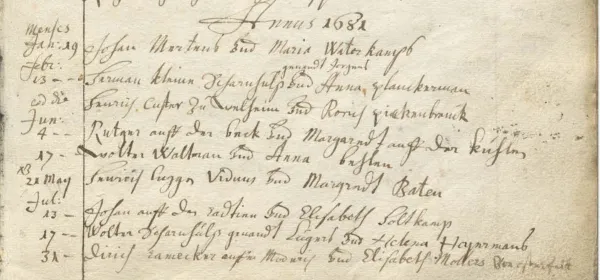 Annus 1681
Menses
Jan: 19 Johan Mertens und Maria Waterkamps
Febr: genandt Jorgens
13 -- Herman kleine Scharnhülß und Anna planckerman
eod die Henrich Custer zu welheim und
Jun:
4 -- Rutger auff der beck und Margaredt auff der kuhlen
17 -- wolter Waltman und Anna behlen
NB
21 May Henrich Viduus und Margredt Baten
Jul:
13 -- Johan auff der und Elisabeth Soltkamp
17 -- Wolter Scharnhülß genandt Lugers und Helena Heyermans
31 -- Dirich und Elisabeth Mollers